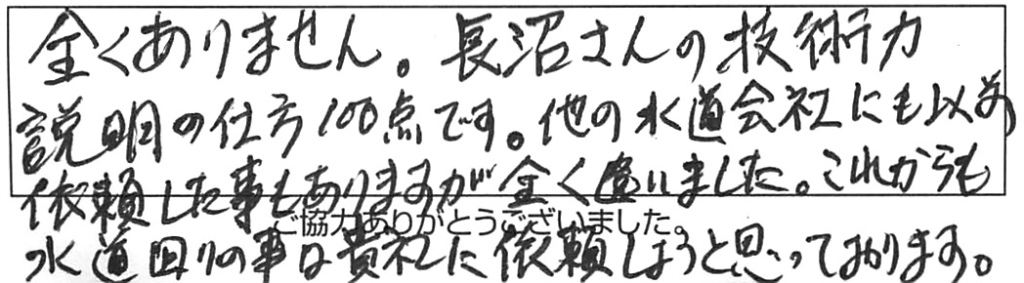 全くありません。長沼さんの技術力
説明の仕方100点です。他の水道会社にも以前
依頼した事もありますが全く違いました。これからも
ご協力ありがとうございました。
水道回りの事は貴社に依頼しようと思っております。